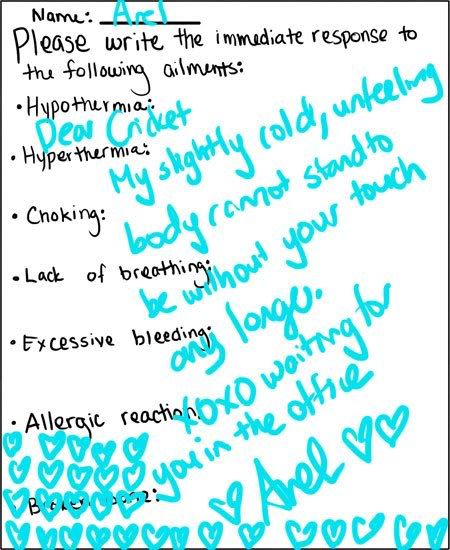 Name:
Please write the immediate response to
the following ailments:
• Hypothermia:
• Hyperthermia:
• Choking:
• Lack of breathing:
• Excessive bleeding:
• Allergic reaction:
• Broken bone:
Dear Cricket
My slightly cold, unfeeling
body cannot stand to
be without your touch
any longer.
XOXO waiting for
you in the office